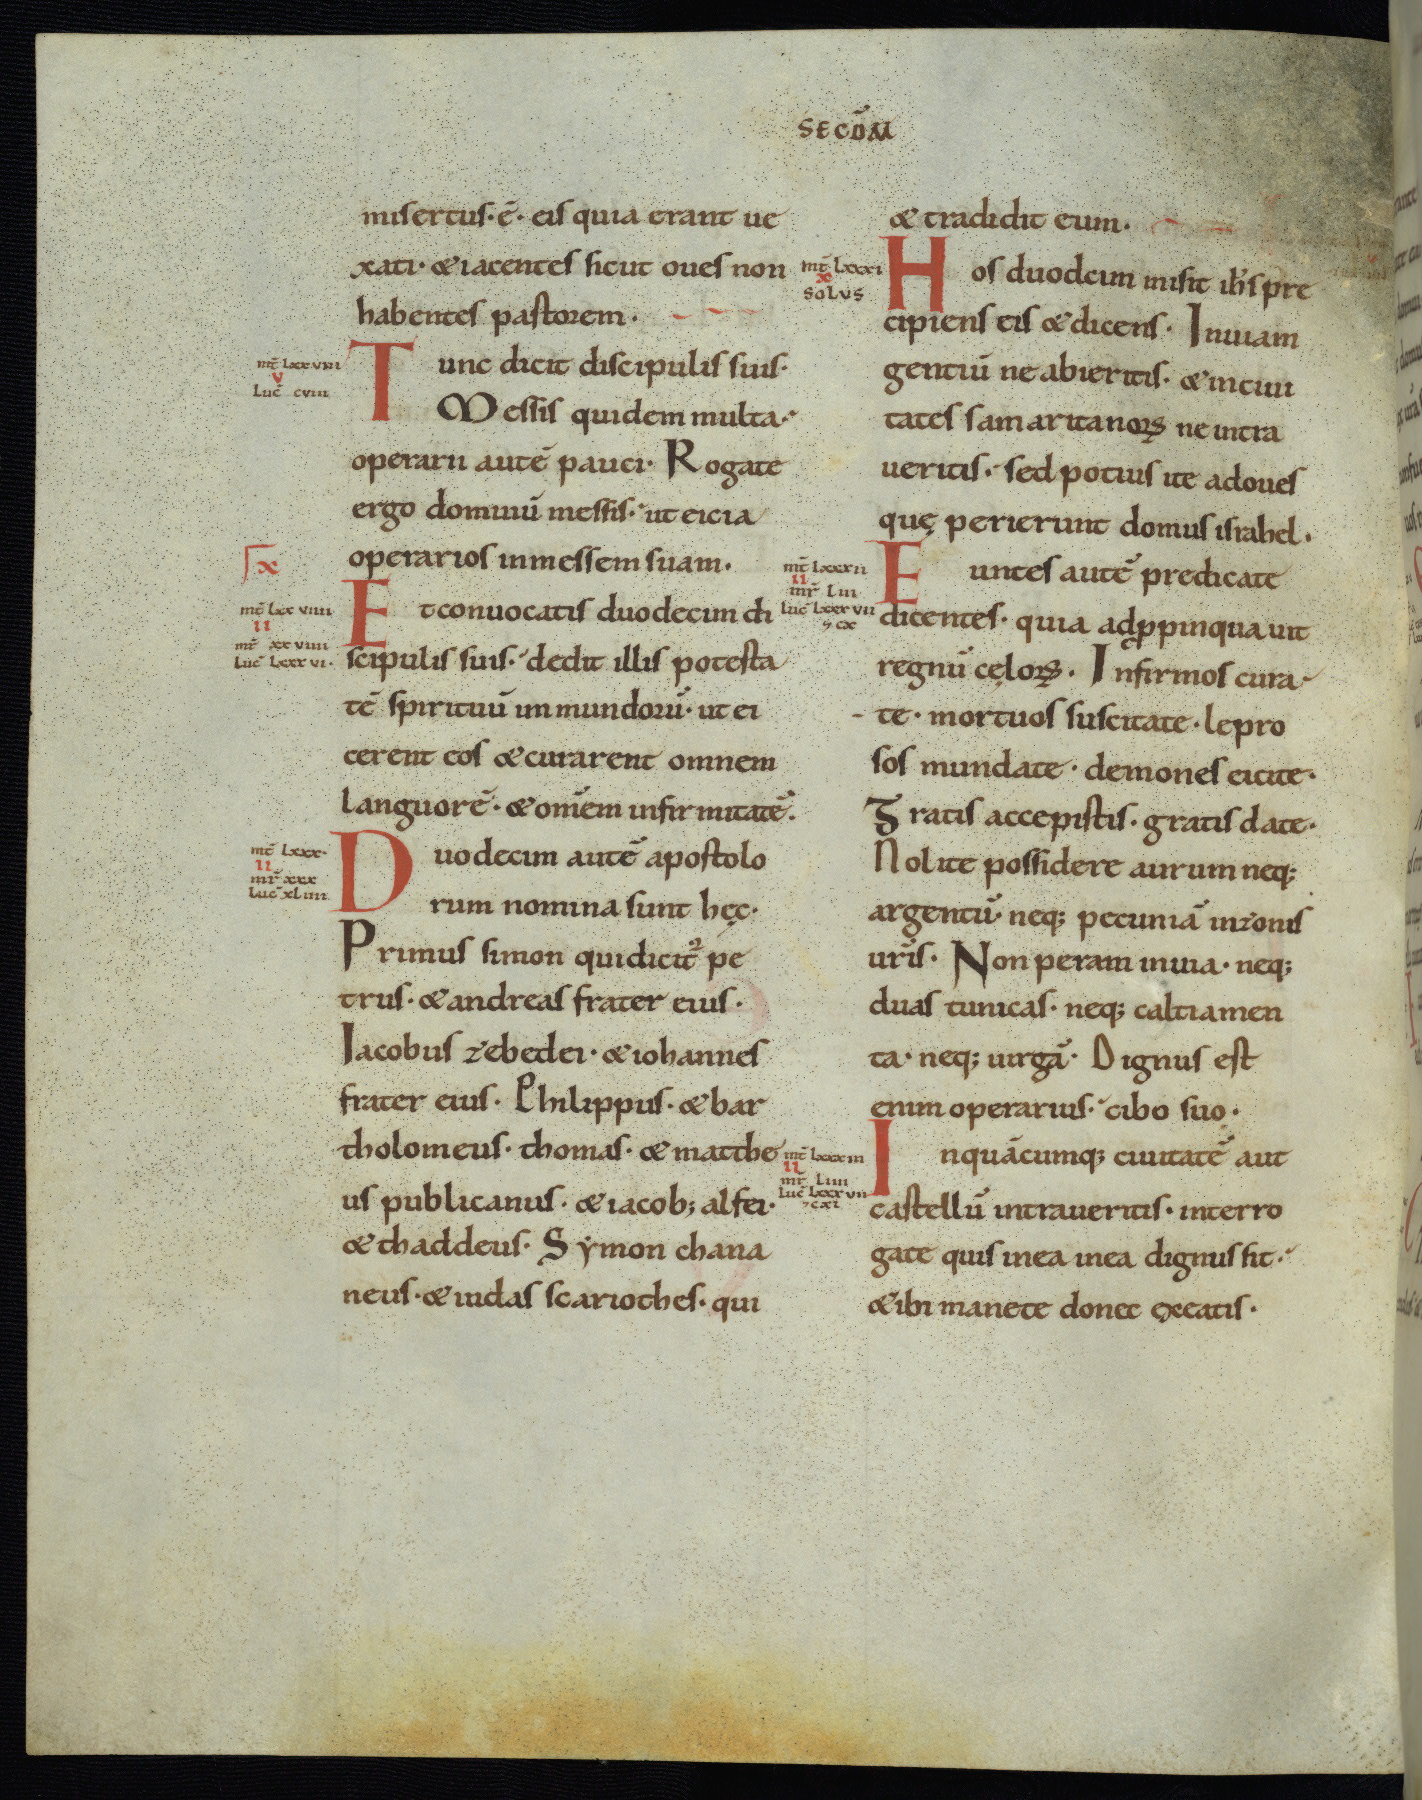 SECŪM
misertus·ē· eis quia erant ue
xati· & iacentes sicut oues non
habentes pastorem·
mt̄ Lxxviii
v
Luc̄ cviii
Tunc dicit discipulis suis·
Messis quidem multa·
operarii autē pauci· Rogate
ergo dominū messis· ut eicia
operarios inmessem suam·
x
mt̄ Lxxviiii
ii
mr̄ xxviiii
Luc̄ Lxxxvi·
Et conuocatis duodecim di
scipulis suis· dedit illis potesta
tē spirituū immundorū· ut ei
cerent eos & curarent omnem
languorē· & om̄em infirmitatē·
mt̄ Lxxx·
ii
mr̄ xxx
Luc̄ xLiiii
Duodecim autē apostolo
rum nomina sunt hęc·
Primus simon qui dicit᷒ pe
trus· & andreas frater eius·
Iacobus zebedei· & iohannes
frater eius· Philippus· & bar
tholomeus· thomas· & matthe
us publicanus· & iacob; alfei·
& thaddeus· Sẏmon chana
neus· & iudas scariothes· qui
& tradidit eum·
mt̄ Lxxxi
x
SOLVS
Hos duodecim misit ih̄s pre
cipiens eis & dicens· Inuiam
gentiū ne abieritis· & inciui
tates samaritanoꝝ ne intra
ueritis· sed potius ite adoues
quę perierunt domus israhel·
mt̄ Lxxxii
ii
mr̄ Liii
Luc̄ Lxxxvii
⁊ cx
Euntes autē predicate
dicentes· quia adꝓpinquauit
regnū cęloꝝ· Infirmos cura
te· mortuos suscitate· lepro
sos mundate· demones eicite·
Gratis accepistis· gratis date·
Nolite possidere aurum neq;
argentū· neq; pecuniā inzonis
ur̄is· Non peram inuia· neq;
duas tunicas· neq; caltiamen
ta· neq; uirgā· Dignus est
enim operarius· cibo suo·
mt̄ Lxxxiii
ii
mr̄ Liiii
Luc̄ Lxxxvii
⁊ cxi
Inquācumq; ciuitatē aut
castellū intraueritis· interro
gate quis inea inea dignus sit·
& ibi manete donec ęxeatis·